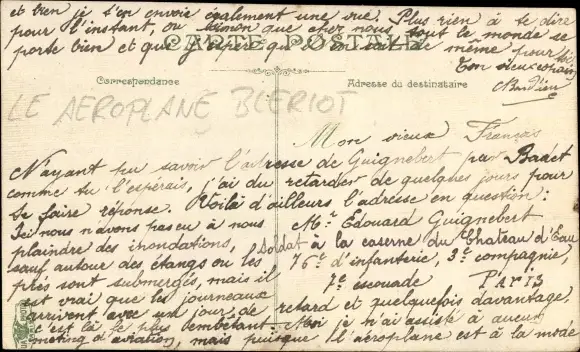 et bien je t'en envoie également une vue. Plus rien à te dire
pour l'instant, ou sinon que chez nous tout le monde se
porte bien et que j'espère qu'il en soit de même pour toi
Ton vieux copain
CARTE POSTALE
Correspondance
Adresse du destinataire
LE AEROPLANE BLERIOT
Mon vieux Français
N'ayant pu savoir l'adresse de Guignebert par Badet
comme tu l'espérais, j'ai du retarder de quelques jours pour
te faire réponse. Voilà d'ailleurs l'adresse en question :
Mr Edouard Guignebert
Soldat à la caserne du Chateau d'Eau
76e d'infanterie, 3e compagnie,
7e escouade PARIS
Ici nous n'avons pas eu à nous
plaindre des inondations,
sauf autour des étangs ou les
prés sont submergés, mais il
est vrai que les journaux
arrivent avec un jour de
retard et quelquefois davantage,
c'est là le plus embêtant. Moi je n'ai assisté à aucun
meeting d'aviation, mais puisque l'aéroplane est à la mode